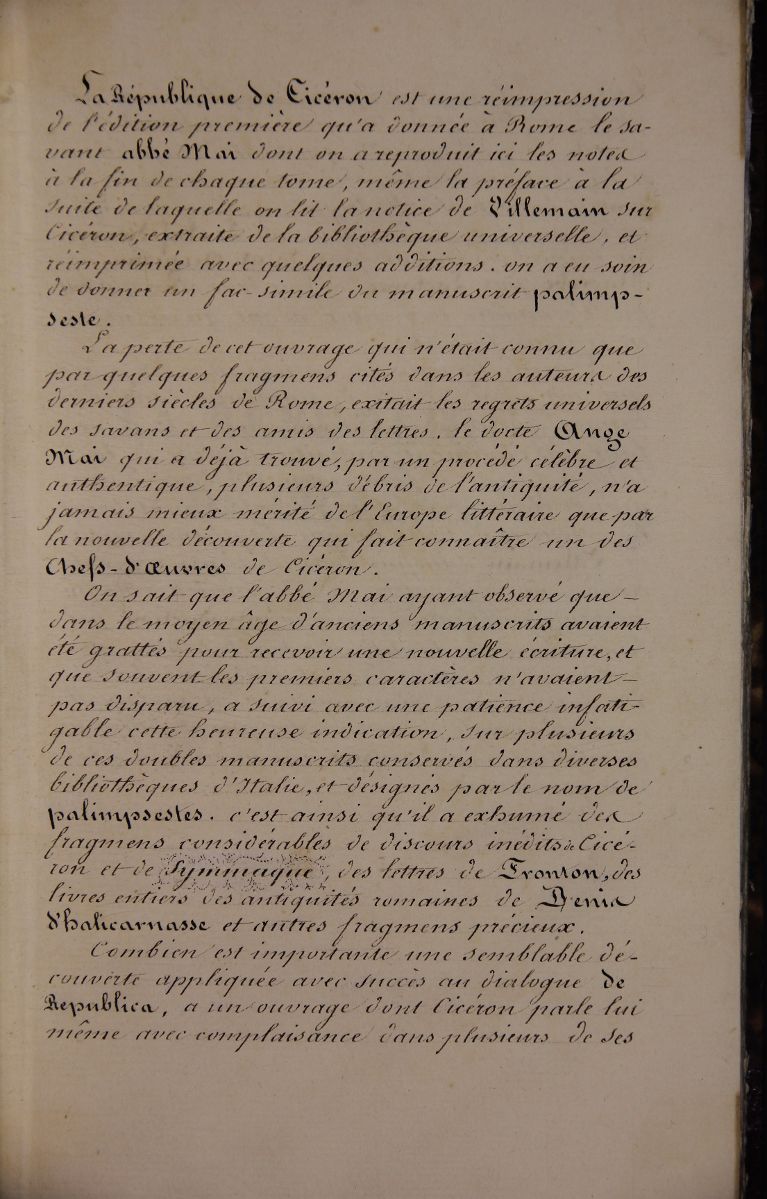 La République de Cicéron est une réimpression
de l'édition première qu'a donnée à Rome le sa-
vant abbé Mai dont on a reproduit ici les notes
à la fin de chaque tome, même la préface à la
suite de laquelle on lit la notice de Villemain sur
Cicéron, extraite de la bibliothèque universelle, et
réimprimée avec quelques additions. on a eu soin
de donner un fac-simile du manuscrit palimp-
seste.
La perte de cet ouvrage qui n'était connu que
par quelques fragmens cités dans les auteurs des
derniers siècles de Rome, exitait les regrets universels
des savans et des amis des lettres. le docte Ange
Mai qui a déjà trouvé, par un procédé célèbre et
authentique, plusieurs débris de l'antiquité, n'a
jamais mieux mérité de l'Europe littéraire que par
la nouvelle découverte qui fait connaître un des
Chefs-d'œuvres de Cicéron.
On sait que l'abbé Mai ayant observé que
dans le moyen âge d'anciens manuscrits avaient
été grattés pour recevoir une nouvelle écriture, et
que souvent les premiers caractères n'avaient
pas disparu, a suivi avec une patience infati-
gable cette heureuse indication, sur plusieurs
de ces doubles manuscrits conservés dans diverses
bibliothèques d'Italie, et désignés par le nom de
palimpsestes. c'est ainsi qu'il a exhumé des
fragmens considérables de discours inédits de Cicé-
ron et de Symmaque, des lettres de Fronton, des
livres entiers des antiquités romaines de Denis
d'halicarnasse et autres fragmens précieux.
Combien est importante une semblable dé-
couverte appliquée avec succès au dialogue de
Republica, a un ouvrage dont Cicéron parle lui
même avec complaisance dans plusieurs de ses